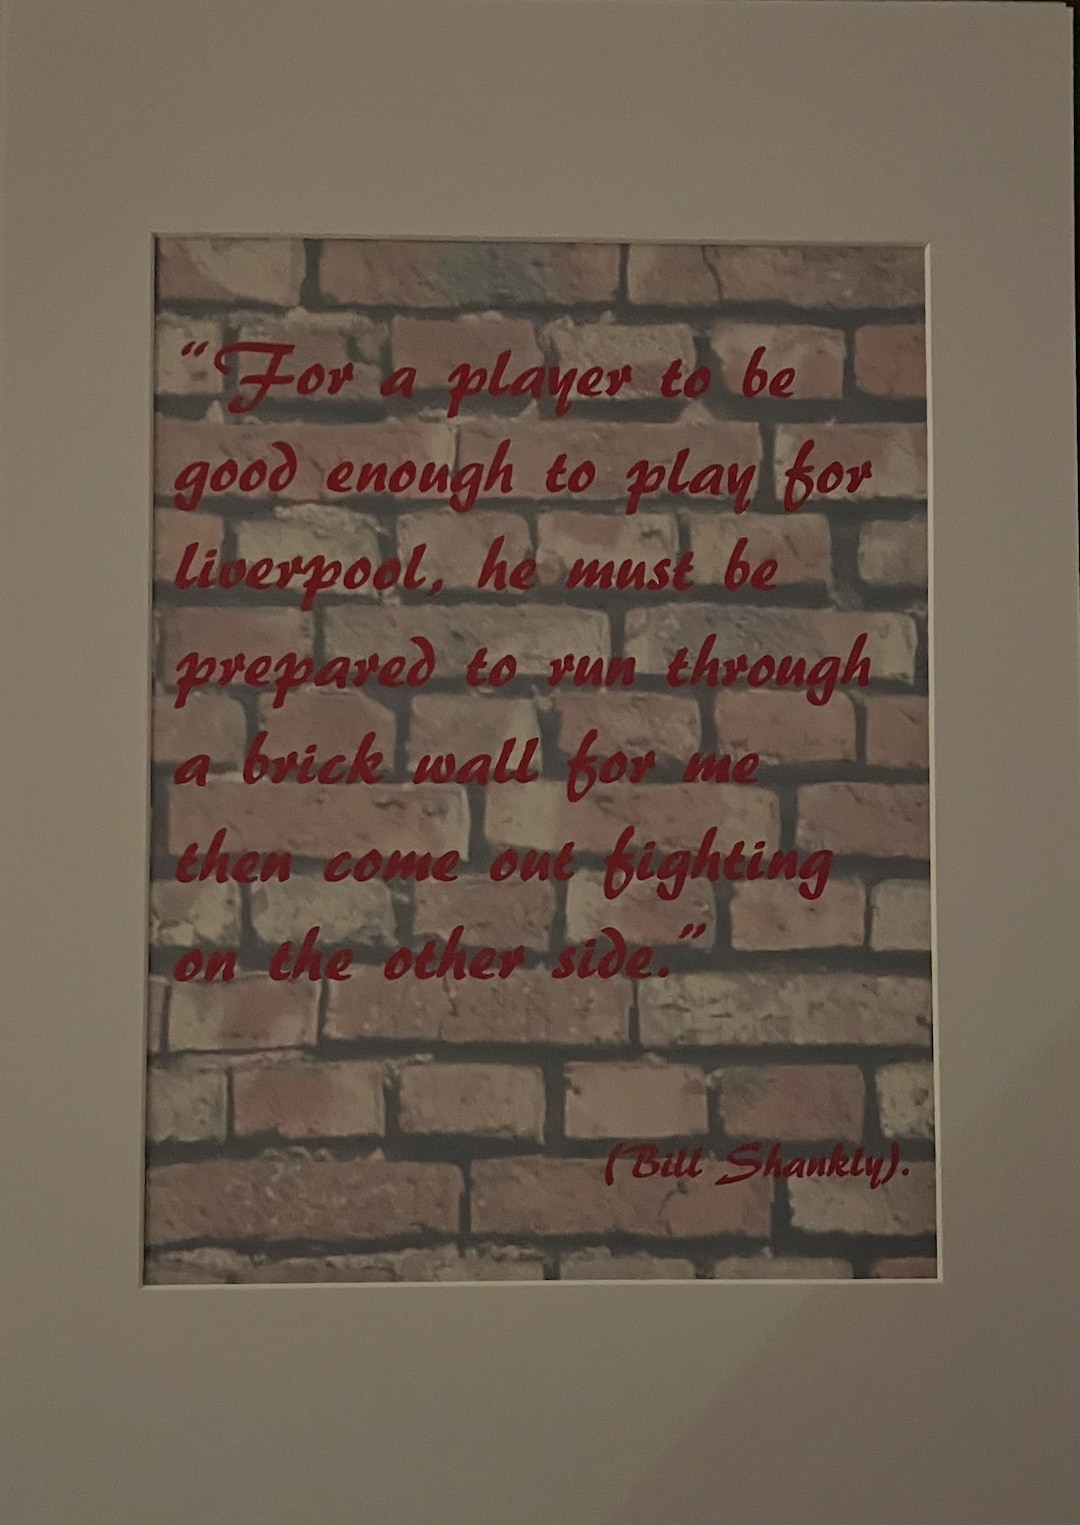 “For a player to be
good enough to play for
liverpool, he must be
prepared to run through
a brick wall for me
then come out fighting
on the other side.”
(Bill Shankly).